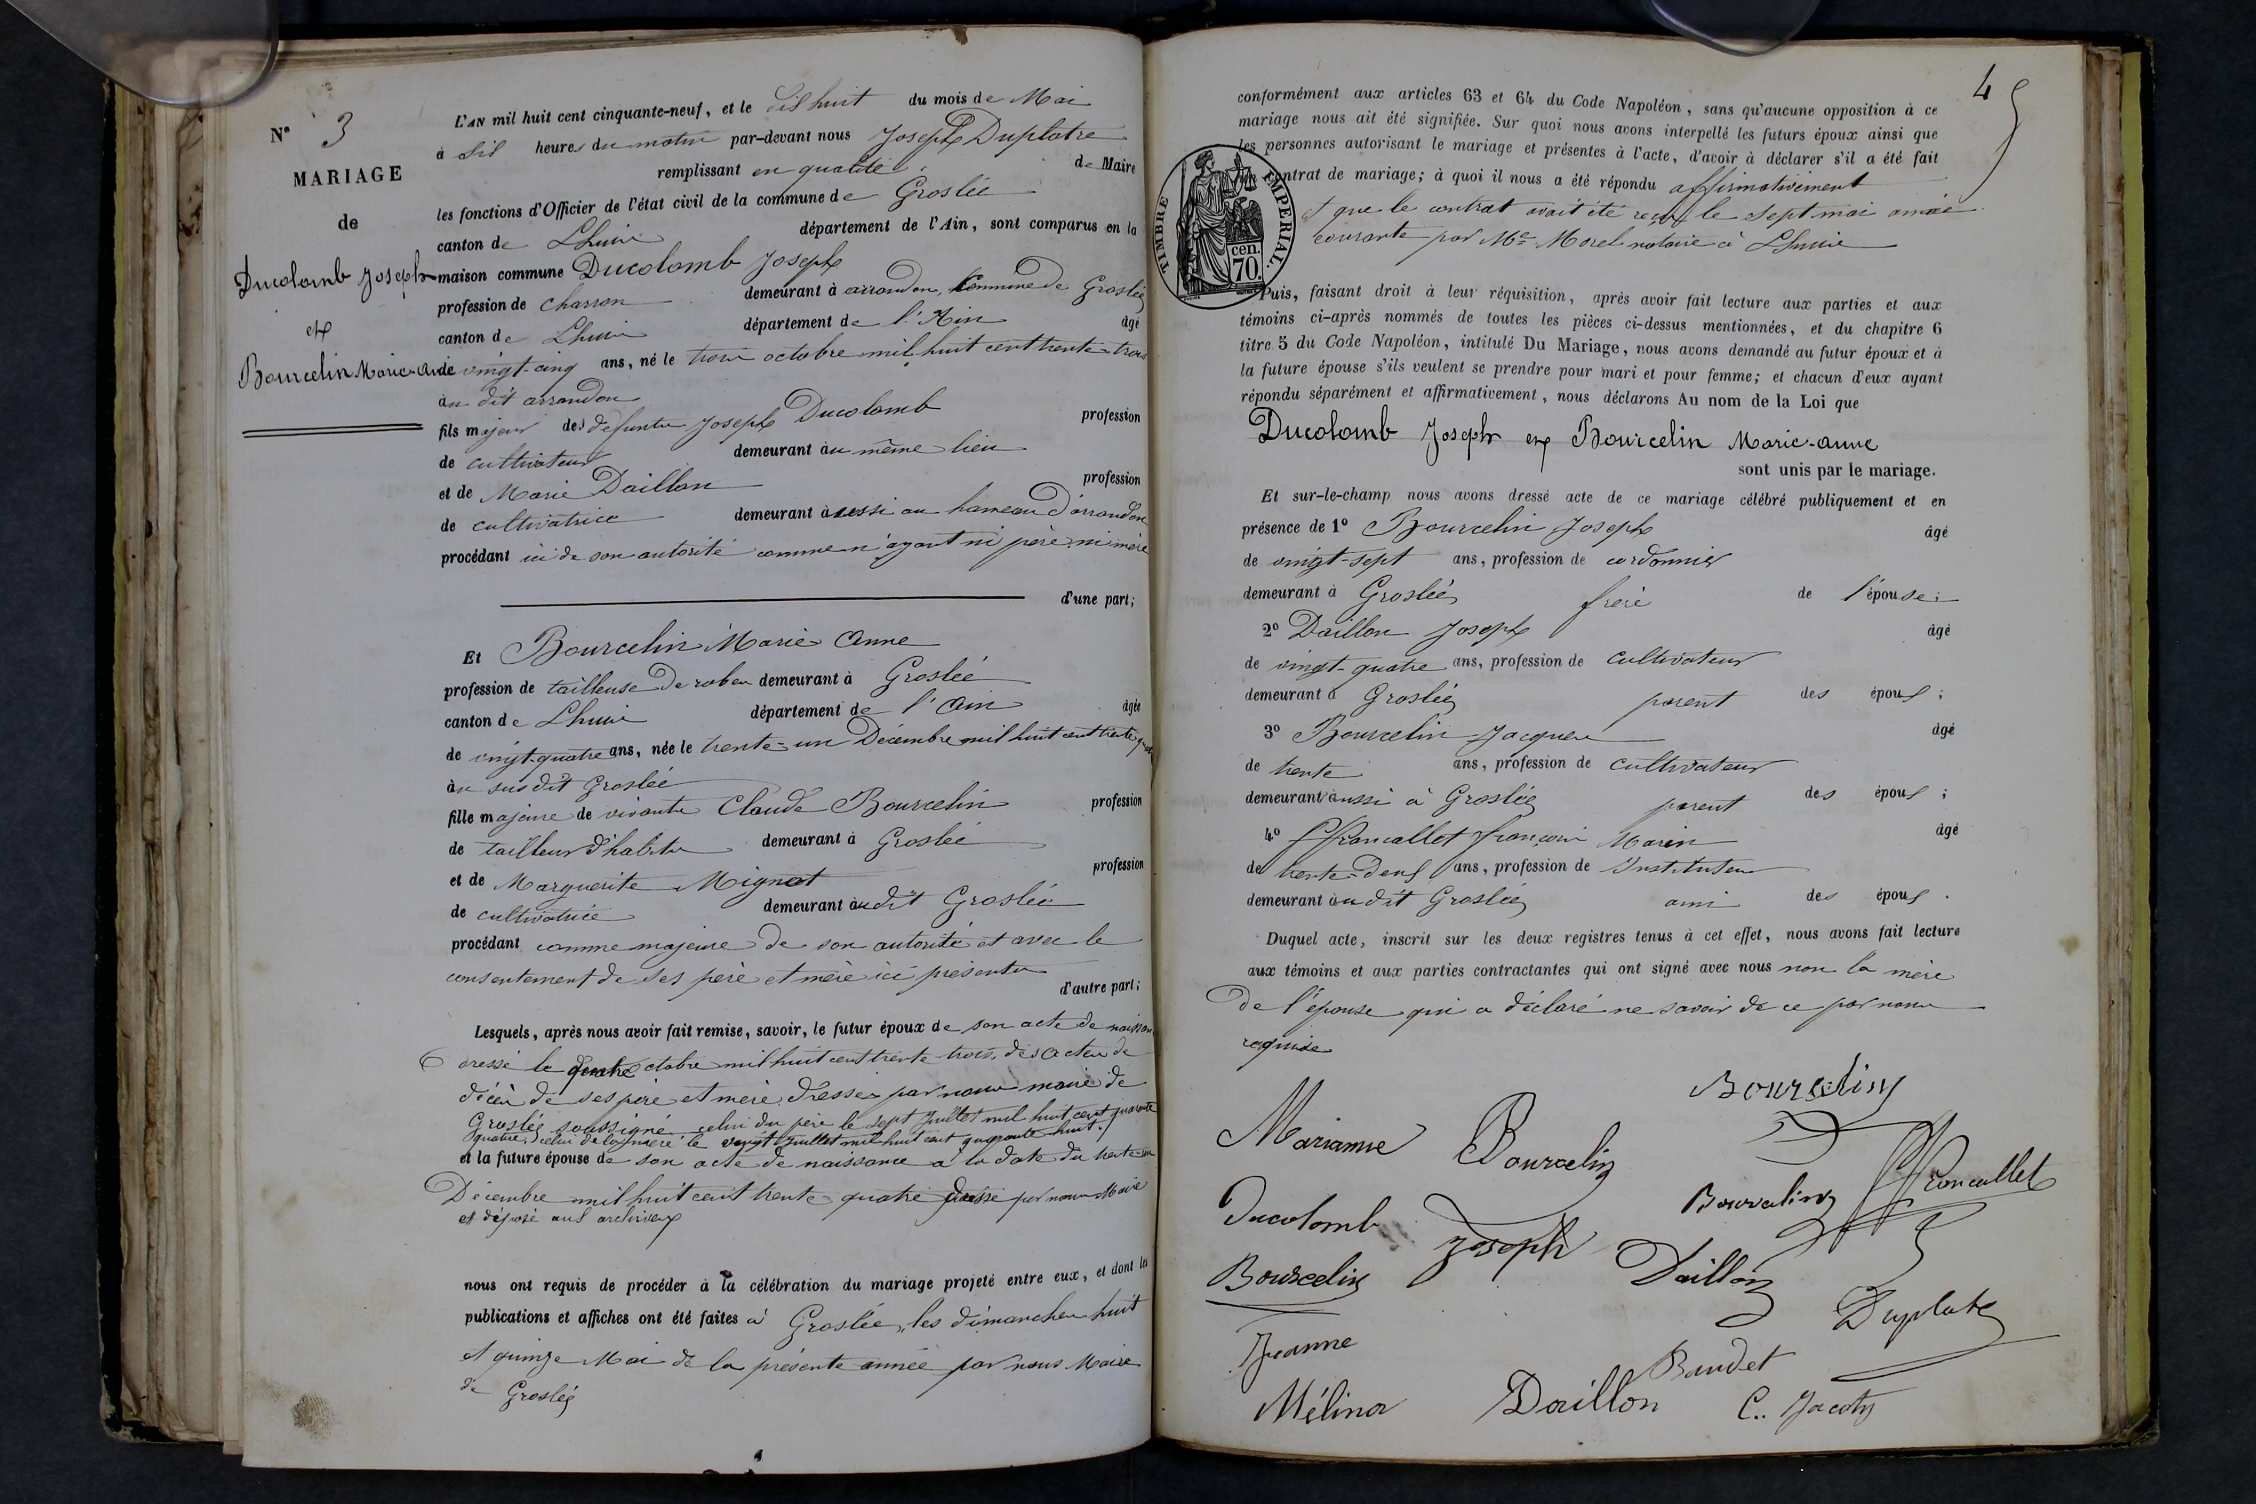 N° 3
MARIAGE
de
Ducolomb Joseph
et
Bourcelin Marie-anne
L'AN mil huit cent cinquante-neuf, et le dix huit du mois de Mai
à dix heures du matin par-devant nous Joseph Duplatre
remplissant en qualité de Maire
les fonctions d'Officier de l'état civil de la commune de Groslée
canton de Lhuis département de l'Ain, sont comparus en la
maison commune Ducolomb Joseph
profession de charron demeurant à arrandon, Commune de Groslée
canton de Lhuis département de l'Ain âgé
de vingt-cinq ans, né le trois octobre mil huit cent trente-trois
au dit arrandon
fils majeur des défunts Joseph Ducolomb profession
de cultivateur demeurant au même lieu
et de Marie Daillon profession
de cultivatrice demeurant aussi au hameau d'arrandon
procédant ici de son autorité comme n'ayant ni père ni mère
d'une part;
Et Bourcelin Marie Anne
profession de tailleuse de robes demeurant à Groslée
canton de Lhuis département de l'Ain âgée
de vingt-quatre ans, née le trente-un Décembre mil huit cent trente-quatre
au susdit Groslée
fille majeure de vivants Claude Bourcelin profession
de tailleur d'habits demeurant à Groslée
et de Marguerite Mignot profession
de cultivatrice demeurant audit Groslée
procédant comme majeure de son autorité et avec le
consentement de ses père et mère ici présents
d'autre part;
Lesquels, après nous avoir fait remise, savoir, le futur époux de son acte de naissance
dressé le quatre octobre mil huit cent trente trois, des actes de
décès de ses père et mère dressés par nous maire de
Groslée soussigné, celui du père le sept Juillet mil huit cent quarante
quatre, celui de la mère le vingt Juillet mil huit cent quarante huit.
et la future épouse de son acte de naissance à la date du trente-un
Décembre mil huit cent trente-quatre dressé par nous Maire
et déposé aux archives
nous ont requis de procéder à la célébration du mariage projeté entre eux, et dont les
publications et affiches ont été faites à Groslée, les dimanches huit
et quinze Mai de la présente année par nous Maire
de Groslée
4
conformément aux articles 63 et 64 du Code Napoléon, sans qu'aucune opposition à ce
mariage nous ait été signifiée. Sur quoi nous avons interpellé les futurs époux ainsi que
les personnes autorisant le mariage et présentes à l'acte, d'avoir à déclarer s'il a été fait
un contrat de mariage; à quoi il nous a été répondu affirmativement
et que le contrat avait été reçu le sept mai année
courante par Me Morel notaire à Lhuis
TIMBRE IMPERIAL.
cen.
70.
Puis, faisant droit à leur réquisition, après avoir fait lecture aux parties et aux
témoins ci-après nommés de toutes les pièces ci-dessus mentionnées, et du chapitre 6
titre 5 du Code Napoléon, intitulé Du Mariage, nous avons demandé au futur époux et à
la future épouse s'ils veulent se prendre pour mari et pour femme; et chacun d'eux ayant
répondu séparément et affirmativement, nous déclarons Au nom de la Loi que
Ducolomb Joseph et Bourcelin Marie-anne
sont unis par le mariage.
Et sur-le-champ nous avons dressé acte de ce mariage célébré publiquement et en
présence de 1° Bourcelin Joseph âgé
de vingt-sept ans, profession de cordonnier
demeurant à Groslée frère de l'épouse;
2° Daillon Joseph âgé
de vingt-quatre ans, profession de cultivateur
demeurant à Groslée parent des époux;
3° Bourcelin Jacques âgé
de trente ans, profession de cultivateur
demeurant aussi à Groslée parent des époux;
4° Francallet françois Marin âgé
de trente-deux ans, profession de Instituteur
demeurant au dit Groslée ami des époux.
Duquel acte, inscrit sur les deux registres tenus à cet effet, nous avons fait lecture
aux témoins et aux parties contractantes qui ont signé avec nous non la mère
de l'épouse qui a déclaré ne savoir de ce par nous
requise
Bourcelin
Marianne Bourcelin
Bourcelin Francallet
Ducolomb Joseph
Bourcelin Daillon
Duplatre
Jeanne
Baudet
Mélina Daillon C. Jacoty